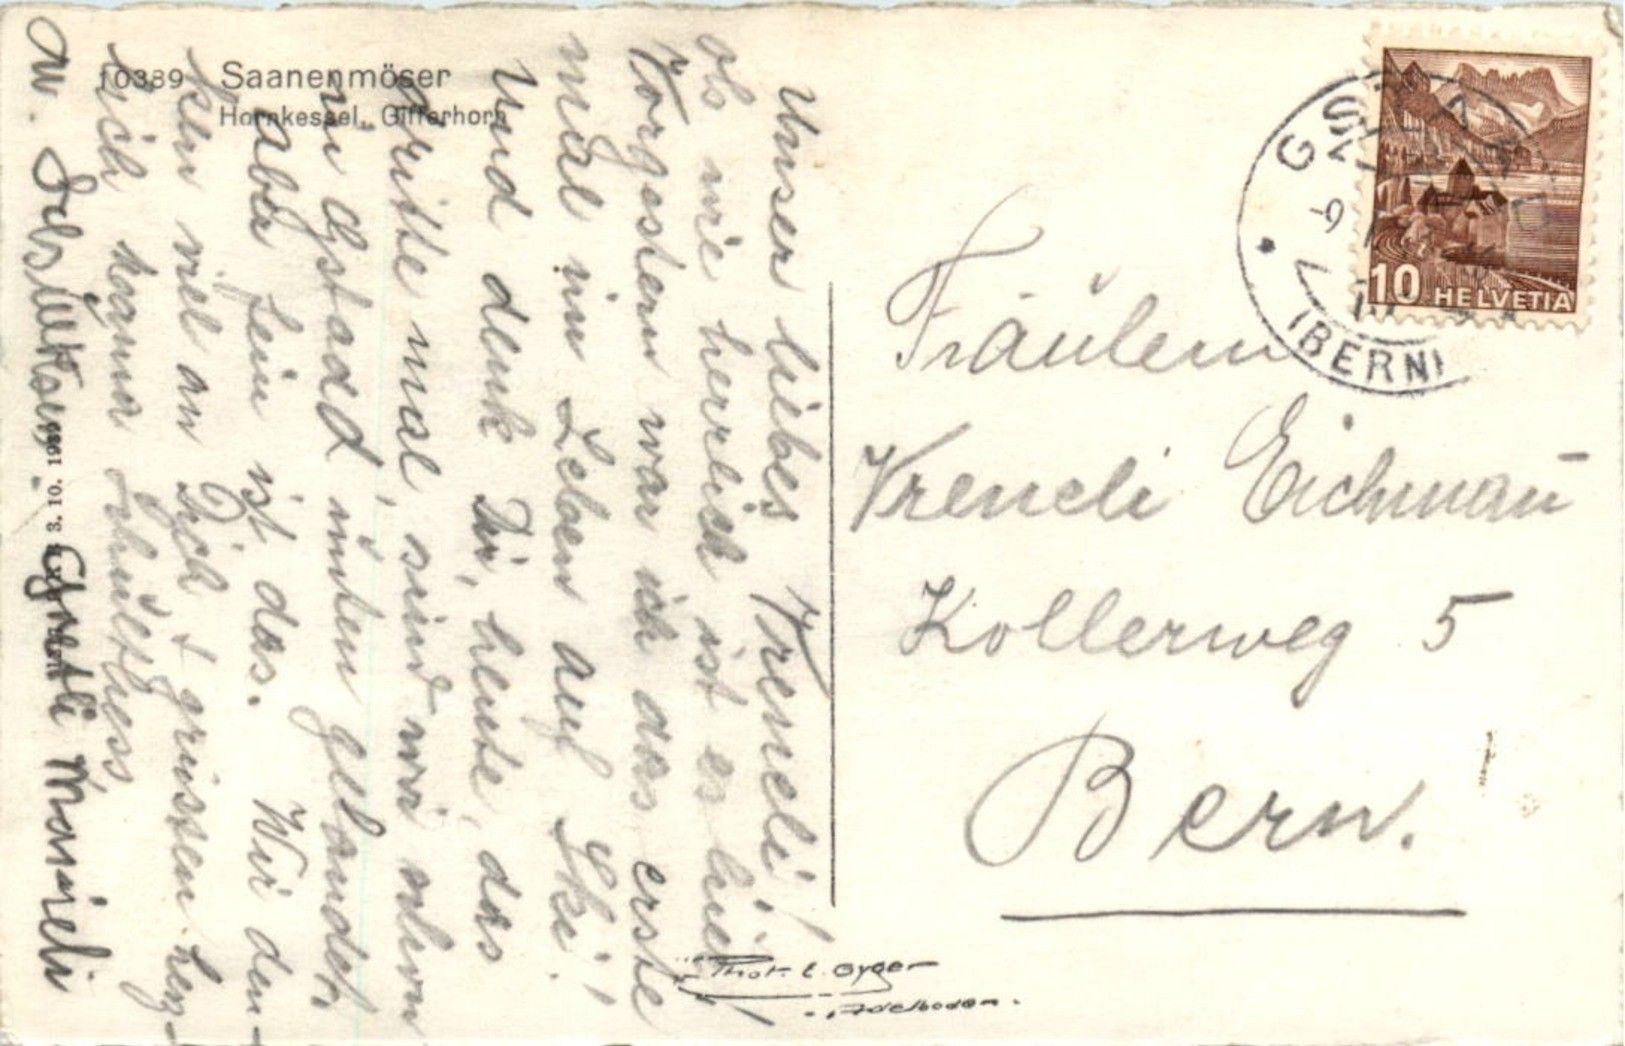 10389 Saanenmöser
Hornkessel, Gifferhorn
Unser liebes Vreneli!
Oh wie herrlich ist es hie!
Vorgestern war ich das erste
mal im Leben auf Ski!
Und denk Dir, heute, das
dritte mal, sind wir schon
in Gstaad unten gelandet,
aber fein ist das. Wir den-
ken viel an Dich & grüssen herz-
lich
M.
Gretli Marieli
3. 10. 19
Phot. E. Gyger
Adelboden.
GSTAAD
-9.
(BERN)
10 HELVETIA
Fräulein
Vreneli Eichmann
Kollerweg 5
Bern.